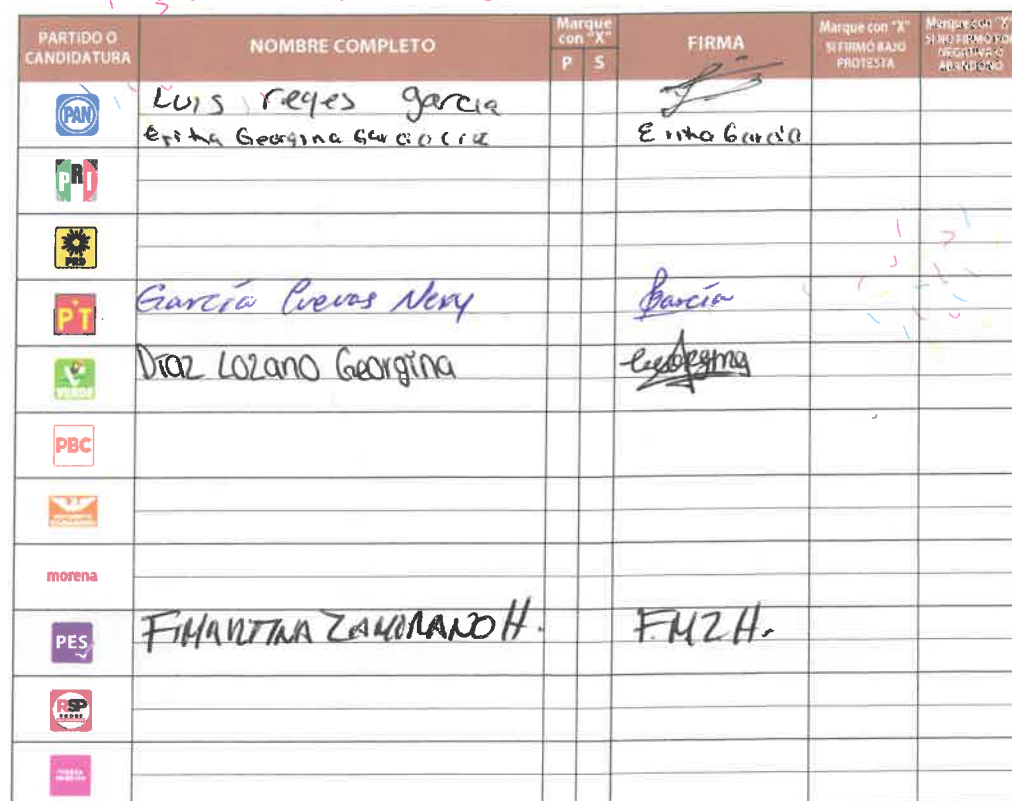 PARTIDO O CANDIDATURA
NOMBRE COMPLETO
Marque con "X"
P S
FIRMA
Marque con "X" SI FIRMÓ BAJO PROTESTA
Marque con "X" SI NO FIRMÓ POR NEGATIVA O ABANDONO
PAN
Luis reyes garcia
Erika Georgina Garcia
Erika García
PRI
PRD
PT
García Cuevas Nery
García
VERDE
Díaz Lozano Georgina
Georgina
PBC
morena
PES
F. MARTINA ZAMORANO H.
F.M.Z.H.
RSP